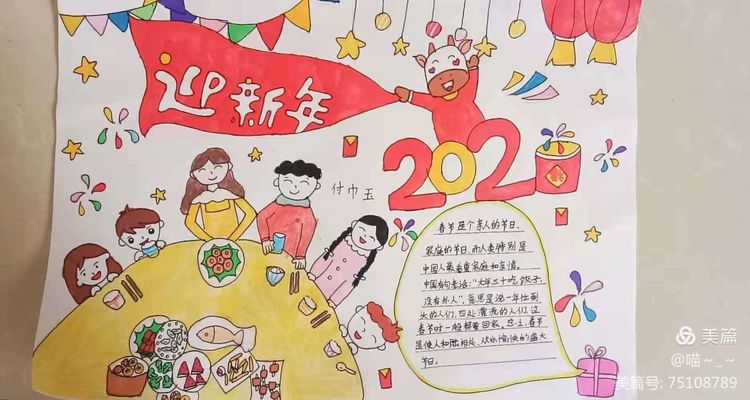 迎新年
2021
付巾玉
春节是个亲人的节日、
家庭的节日,而人类特别是
中国人最看重家庭和友情。
中国有句老话:“大年三十吃饺子
没有外人”,意思是说一年忙到
头的人们,四处漂流的人们,这
春节时一般都要回家。总之,春节
是使人和睦相处、欢乐愉快的盛大
节日。
美篇
@喵~_~
美篇号: 75108789